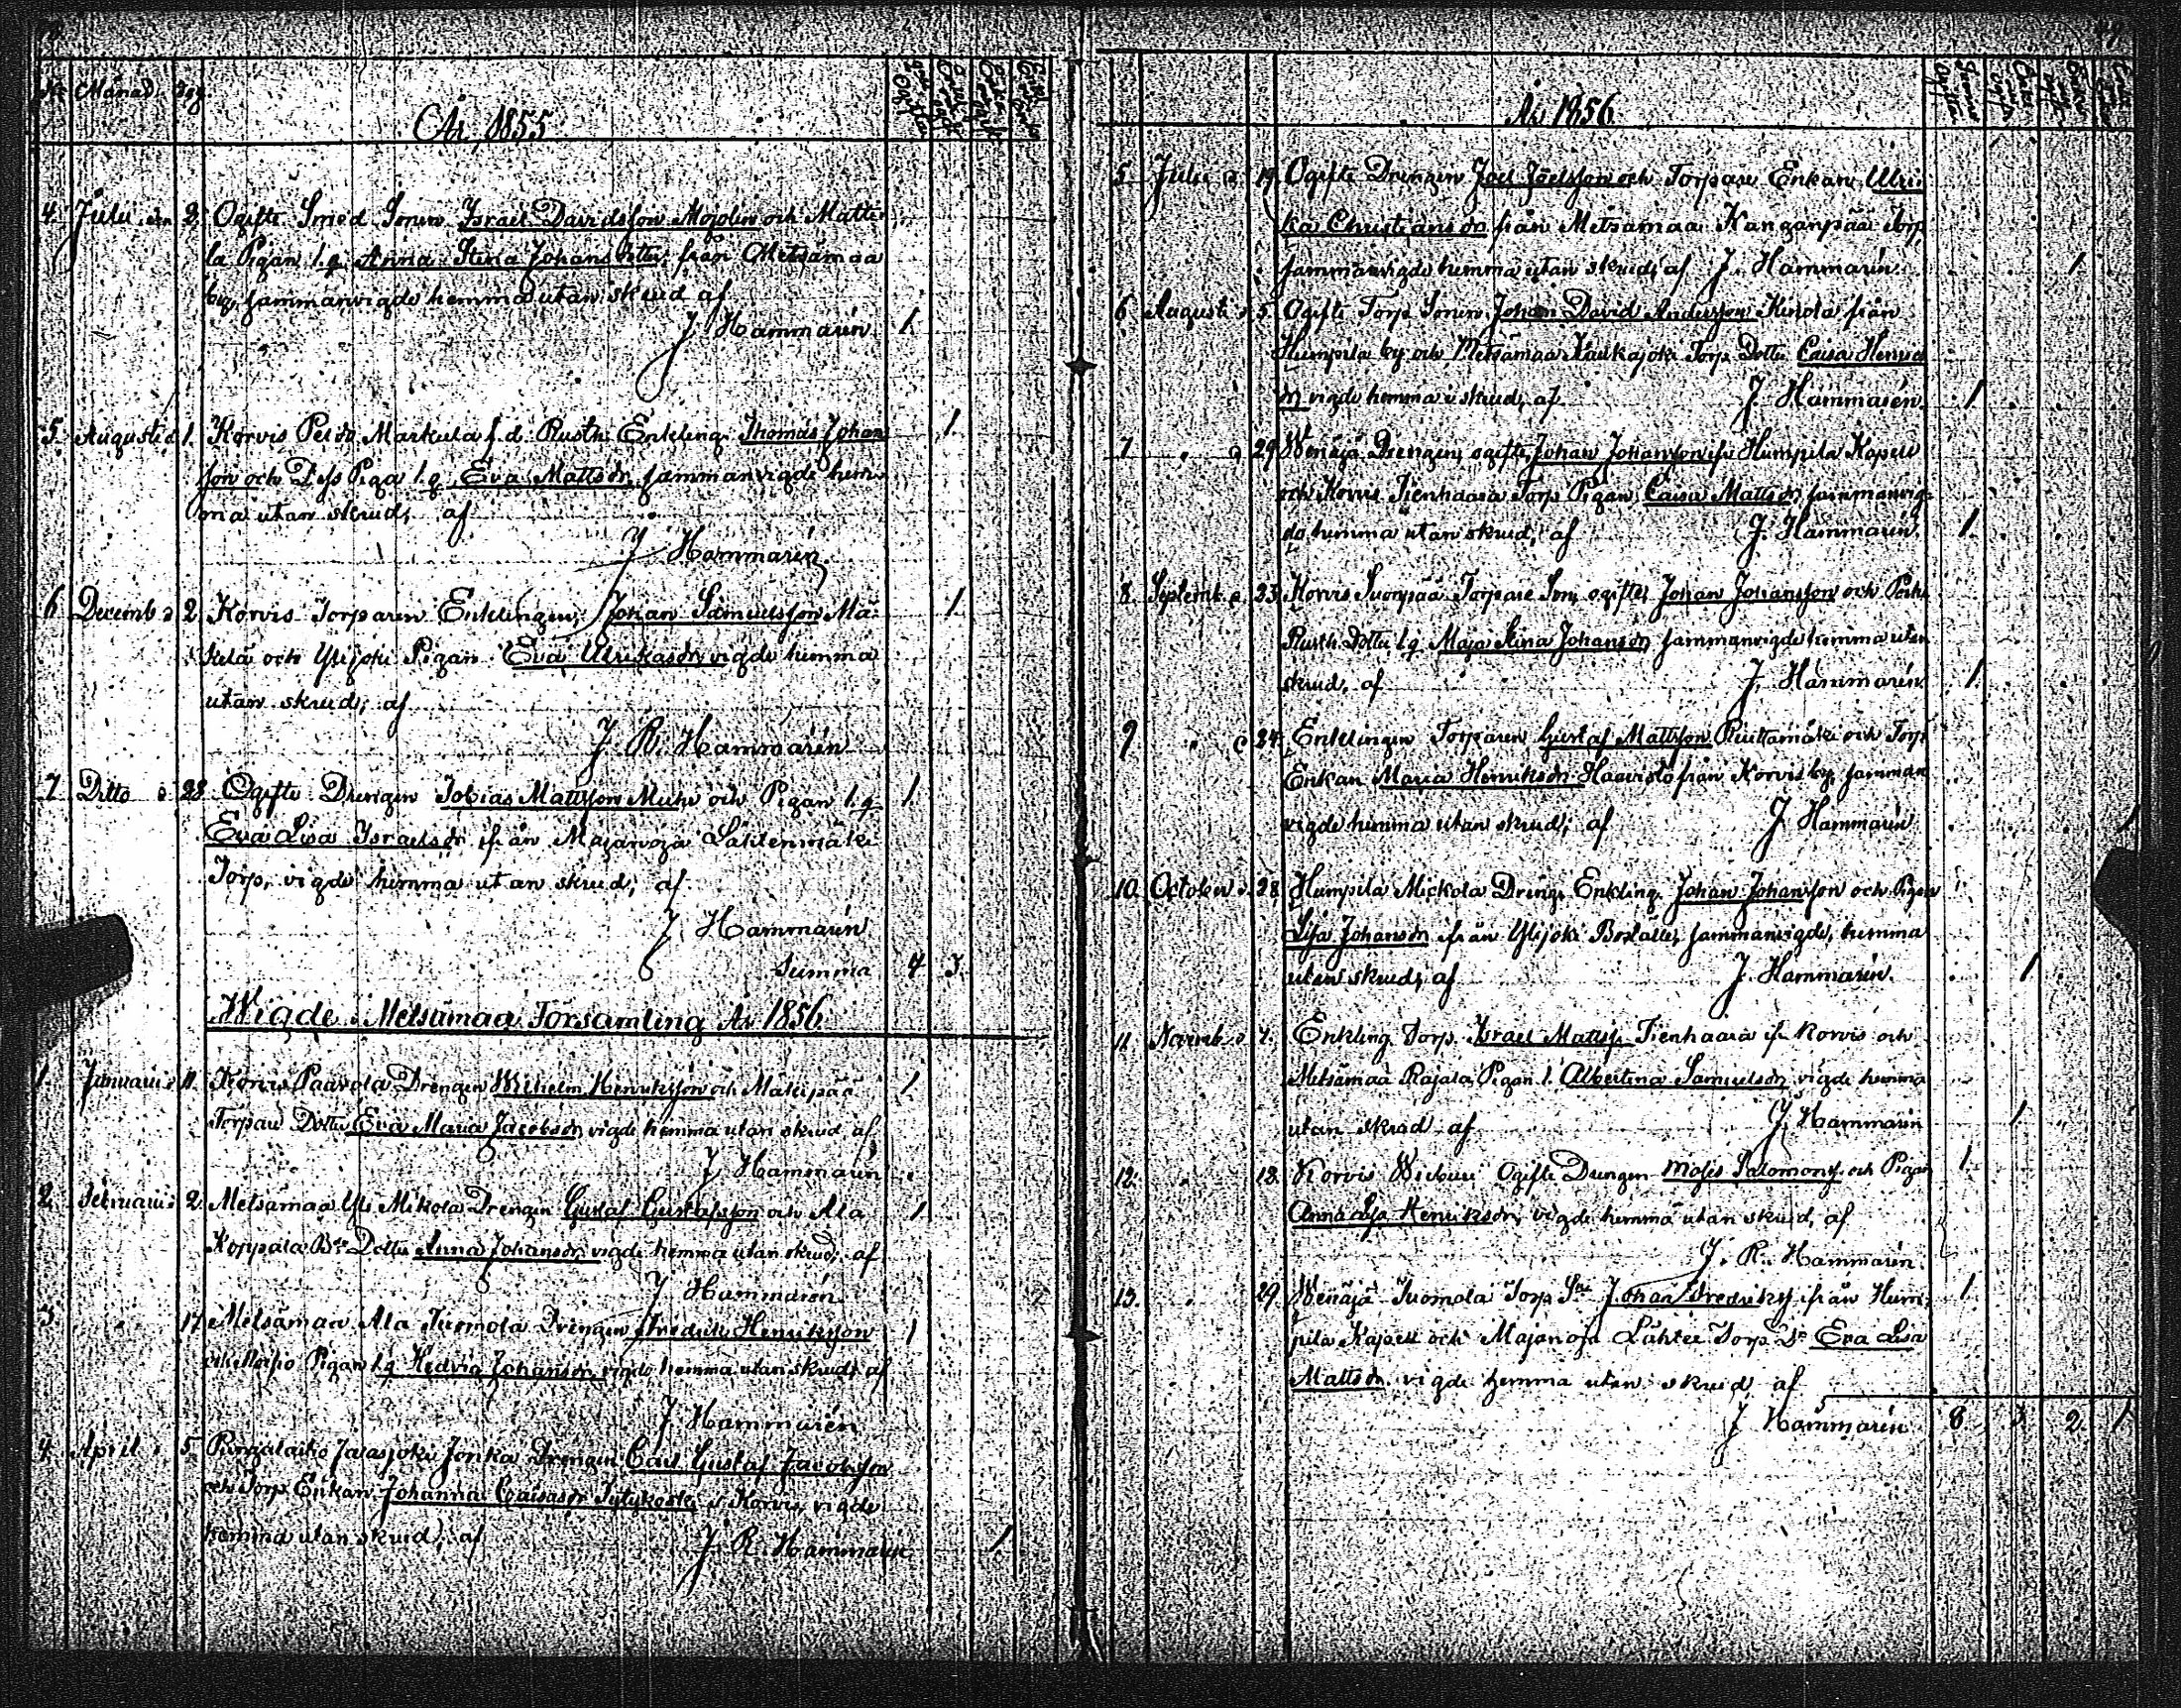 No Månad. Dag.
År 1855
4. Julii den 2. Ogifte Smed Sonen Israel Davidsson Mojolin och Matti-
la Pigan l.q. Anna Stina Johansdotter, från Metsämaa
by, sammanvigde hemma utan skrud af
J. Hammarén 1.
5. Augusti d. 1. Korvis Markula f.d. Rusth. Enkling Thomas Johan
sson och Dess Piga l.q. Eva Mattsdr sammanvigde hem-
ma utan skrud, af 1.
J. Hammarén
6 Decemb. d 2. Korvis Torparen Enklingen, Johan Samuelsson Mä- 1.
kelä och Ylijoki Pigan Eva Ulrikasdr vigde hemma
utan skrud; af
J. R. Hammarén
7. Ditto d 28 Ogifte Drengen Tobias Mattsson och Pigan l.q. 1.
Eva Lisa Israelsdr ifrån Majanoja Lähtenmäki
Torp, vigde hemma utan skrud; af
J. Hammarén
Summa 4 3.
Wigde i Metsämaa Församling År 1856.
1. Januarii d 11. Korvis Paavola Drengen Wilhelm Henriksson och Mäkipää 1.
Torpare Dotter Eva Maria Jacobsdr vigde hemma utan skrud af
J. Hammarén
2. Februarii d 2. Metsämaa Yli Mikola Drengen Gustaf Gustafsson och Ala 1.
Koppala Dotter Anna Johansdr vigde hemma utan skrud; af
J Hammarén
3. " 17. Metsämaa Ala Tuomola Drengen Fredrik Henriksson 1
och Pigan l.q. Hedvig Johansdr vigde hemma utan skrud; af
J. Hammarén
4. April d 5. Jonka Drengen Carl Gustaf Jacobsson
och Torp. Enkan Johanna Caisasdr i Korvis, vigde
hemma utan skrud; af J. R. Hammarén 1.
År 1856
5. Julii d 19. Ogifte Drengen Joel Joelsson och Torpare Enkan Ulri-
ka Christiansdr från Metsämaa Kanganpää torp
sammanvigde hemma utan skrud; af J. Hammarén. 1
6 Augusti d 5. Ogifte Torp Sonen Johan David Andersson från
Humpila by och Metsämaa Torp Dotter Caisa Henriks
dr vigde hemma i skrud, af J. Hammarén. 1.
7 " d 29. Wenäjä Drengen, ogifte, Johan Johansson ifr Humpila Kapell
och Korvis Tienhaara Torp Pigan, Caisa Mattsdr, sammanvig-
de hemma utan skrud; af J. Hammarén. 1.
8. Septemb. d. 23. Korvis Suonpää Torpare Son, ogifte, Johan Johansson och
Rusth. Dotter l.q. Maja Stina Johansdr, sammanvigde hemma utan
skrud, af J. Hammarén 1.
9 " d 24. Enklingen Torparen Gustaf Mattsson och Torp
Enkan Maria Henriksdr Haavisto från Korvis by, samman
vigde hemma utan skrud; af J Hammarén 1
10. October d. 28. Humpila Mickola Dreng. Enkling. Johan Johansson och Pigan
Lisa Johansdr ifrån Ylijoki sammanvigde, hemma
utan skrud; af J. Hammarén. 1.
11. Novemb. d 7. Enkling. Torp. Israel Mattss. Tienhaara ifr Korvis och
Metsämaa Rajala Pigan l. Albertina Samuelsdr, vigde hemma
utan skrud af J. Hammarén 1.
12. " 13. Korvis Ogifte Drengen Moses Salomonss. och Pigan 1.
Anna Lisa Henriksdr, vigde hemma utan skrud, af
J. R. Hammarén.
13. " 29. Wenäjä Tuomola Torp Sn Johan Fredrikss. ifrån Hum- 1.
pila Kapell och Majanoja Lähtee Torp Dr Eva Lisa
Mattsdr. vigde hemma utan skrud, af
J Hammarén 8. 3. 2. 1.